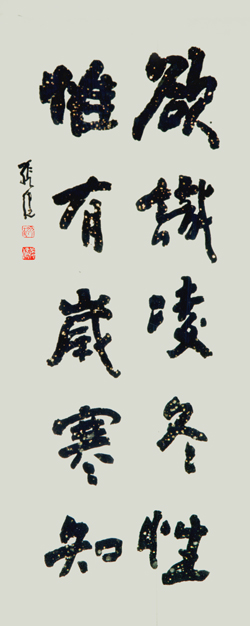 欲識凌冬性
惟有歲寒知